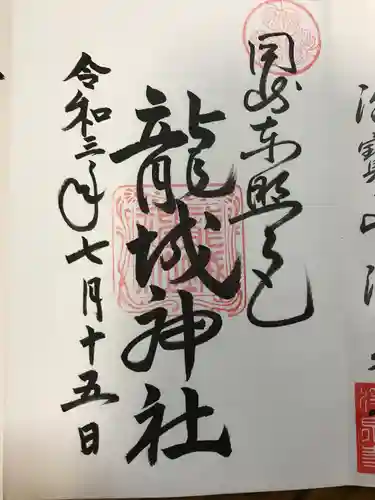 岡崎東照公
龍城神社
令和三年七月十五日